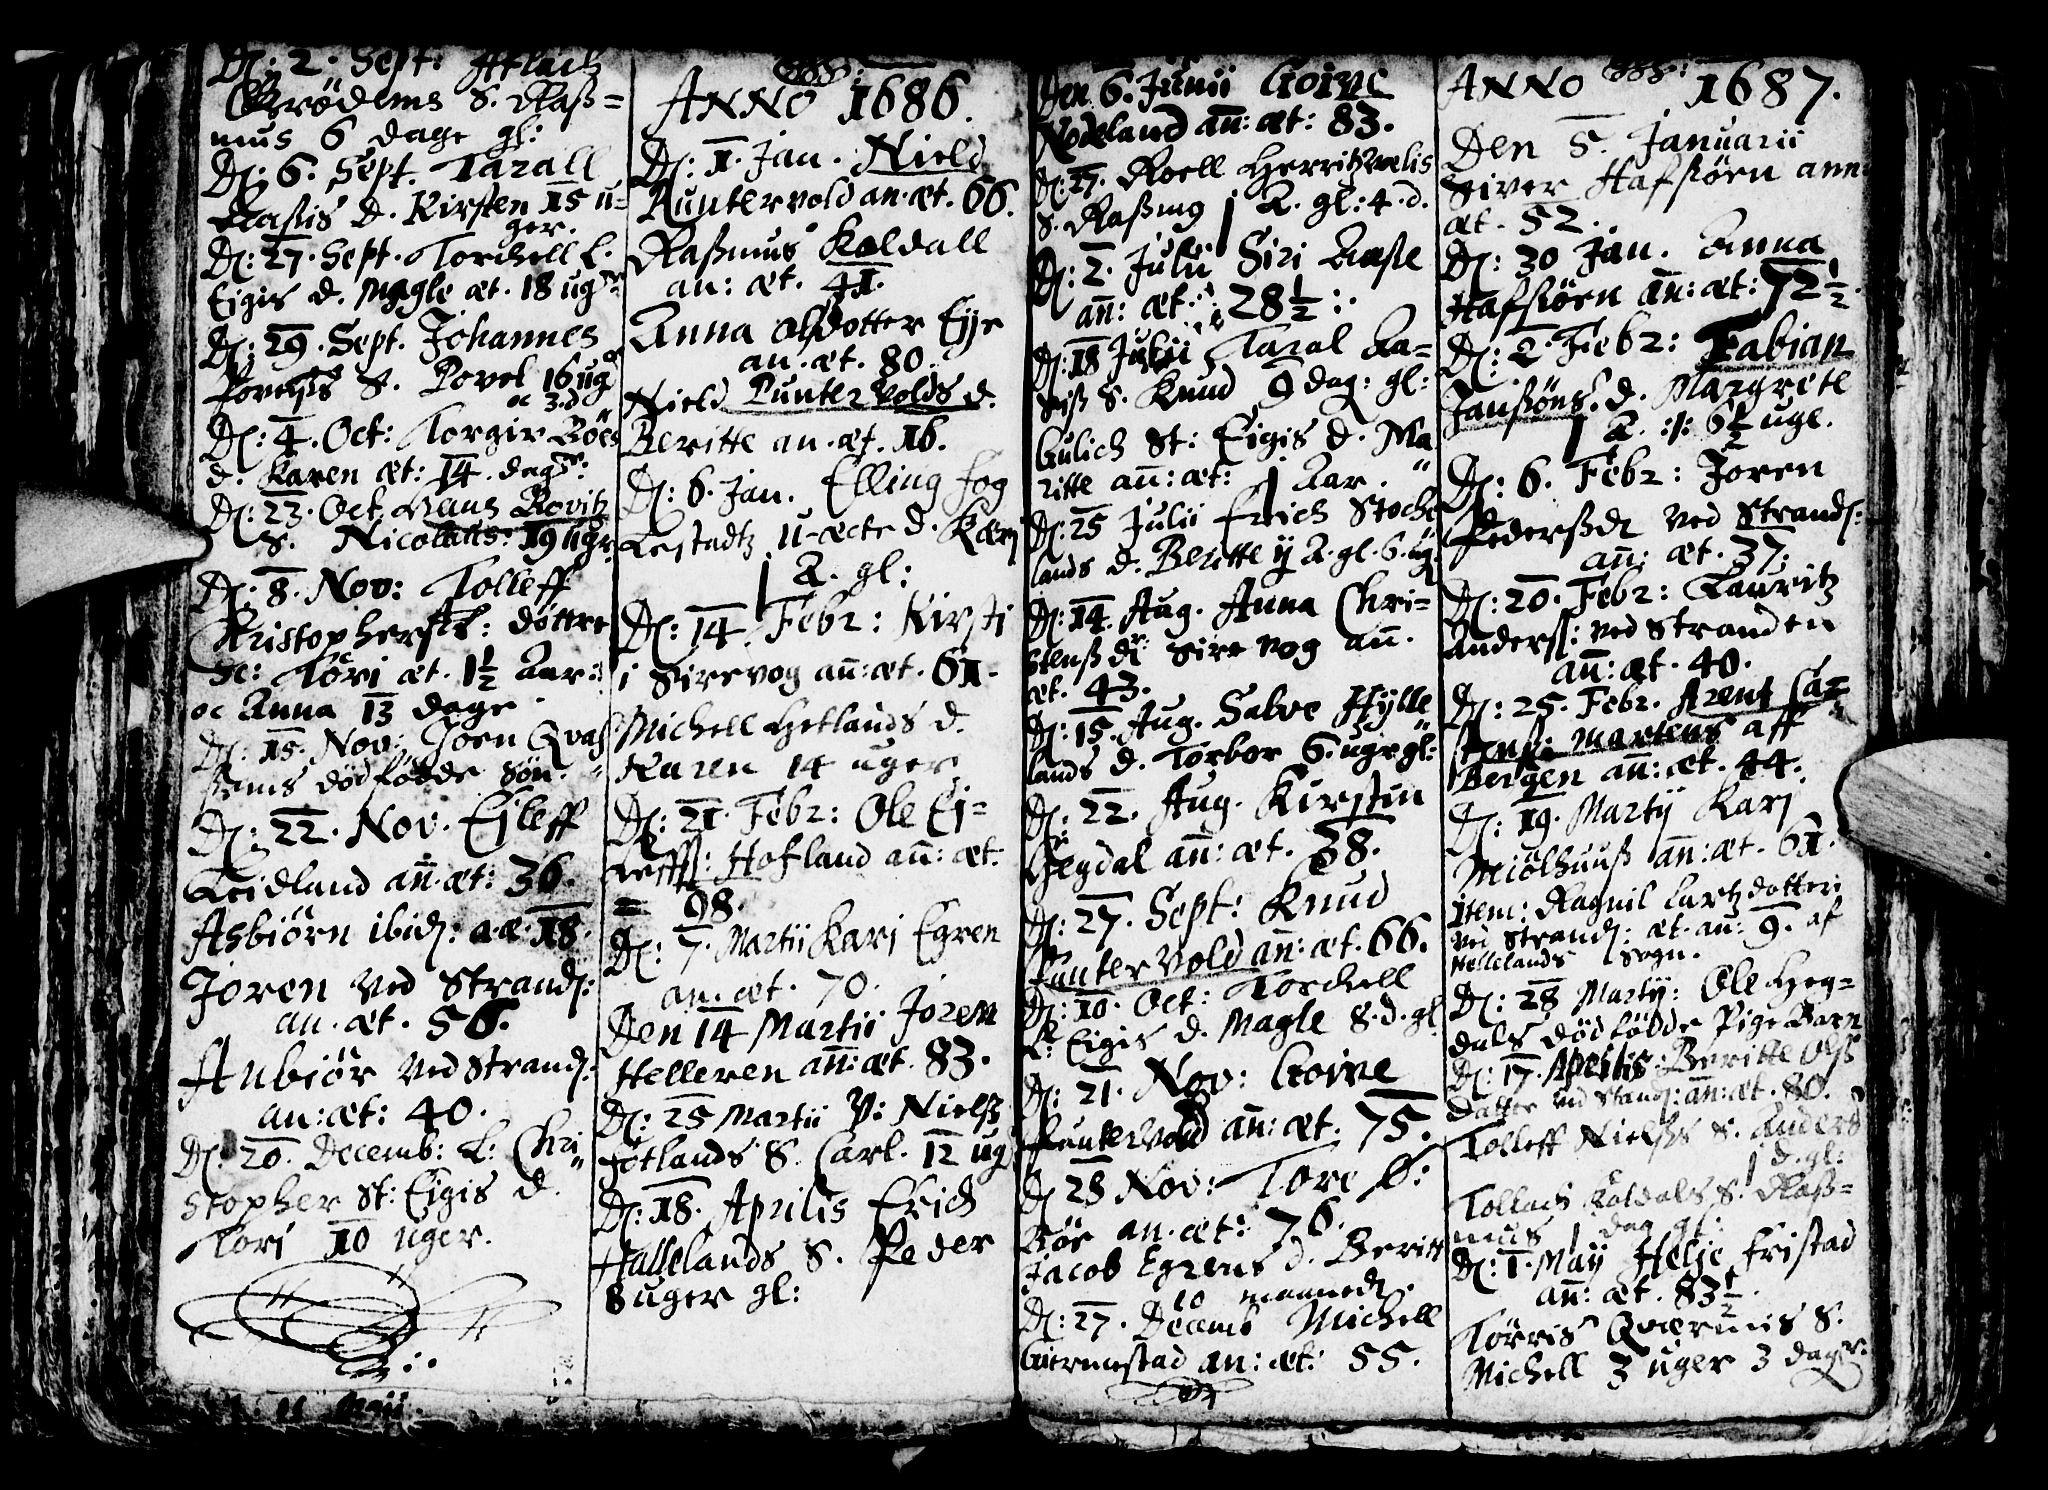 D: 2. Sept: Afflach
Grødems S. Rass=
mus 6 dage gl:
D: 6. Sept. Tarall
Aassis D. Kirsten 15 u-
ger.
D: 27. Sept. Torchell L.
Eigis d. Magle æt. 18 uger
D: 29. Sept. Johannes
S. Povel 16 ug
oc 3. d
D: 4. Oct: Torgir Böes
d. Karen æt: 14. dage:
D: 23. Oct. Hans Rovitz
S. Nicolaus: 19 uger
D: 8. Nov: Tolleff
Kristophers: døttre
Sc: Tori æt. 1½ Aar:
oc Anna 13 dage
D: 15. Nov: Joen Qvas
sems dødfødde Søn.
D: 22. Nov. Ejleff
Leidland añ. æt: 36.
Asbiörn ibid: a.æ. 18.
Joren ved Strand:
an. æt. 56.
Anbiör ved Strand:
an: æt: 40.
D: 20. Decemb: L: Chri
stopher St: Eigis d.
Tori 10 uger.
11 Maii.
ANNO 1686.
D: 1. Jan. Nield
Puntervold an. æt. 66.
Rassmus Koldall
an: æt. 41.
Anna Olsdotter Eye
an. æt. 80.
Nield Puntervolds d.
Beritte an. æt. 16.
D: 6. Jan. Elling Fog
Lestadtz u-ecte d. Karj
1 A. gl:
D: 14 Febr: Kirsti
i Sirevog añ: æt. 61.
Michell Hetlands d.
Karen 14 uger
D: 21. Febr: Ole Ej=
leffs: Hofland añ: æt.
= 98.
D: 7. Martii Karj Egren
an. æt. 70.
Den 14 Martii Joren
Helleren añ: æt. 83.
D: 25 Martii P: Nielss
Jötlands S. Carl. 12 ug
D: 18. Aprilis Erich
Hallelands S. Peder
8 uger gl:
Den 6. Junii Goive
Nodeland añ: æt: 83.
D: 27. Roell Herritzvelis
S. Rassmus 1 A. gl: 4. d.
D: 2. Julii Siri Aasse
añ: æt. 28½:
D: 18 Julii Taral Aa=
siss S. Knud 9 dag: gl:
Gulich St: Eigis d. Ma
ritte añ: æt: 1 Aar.
D: 25 Julii Erich Stoche
lands d. Beritte ij A. gl. 6. ug.
D: 14. Aug. Anna Chri=
stenss dr Sirevog añ.
æt. 43.
D: 15. Aug. Salve Hylle
lands d. Torbor 6. uger gl:
D: 22. Aug. Kirstin
Hegdal añ: æt. 38.
D: 27. Sept: Knud
Puntervold añ: æt. 66.
D: 10. Oct: Torchell
L: Eigis d. Magle 8. d. gl
D: 21. Nov: Goive
Puntervold añ: æt. 75.
D 28 Nov: Tore
Böe an. æt: 76.
Jacob Egrens d. Beritt
10 maaned.
D: 27. Decemb Michell
Giermestad an: æt: 55.
ANNO 1687.
Den 5. Januarii
Siver Hafsiörn ann:
æt. 52.
D: 30 Jan. Anna
Hafsiörn añ: æt: 72½.
D: 2. Febr: Fabian
Janssöns. d. Margrete
1 A. 6½ uge.
D: 6. Febr: Joren
Pederssdr ved Strand:
añ: æt. 37.
D: 20. Febr: Lauritz
Anderss: ved Stranden
añ: æt. 40.
D: 25. Febr. Arent Car
stenss: Martens aff
Bergen añ: æt. 44.
D: 19. Martij Karj
Miölhuuss añ: æt. 61.
Item: Ragnil Lartzdotter
ved Strand: æt. an: 9. af
Hellelands Sogn.
D: 28 Martij: Ole Heg=
dals dødfödde Pige Barn
D: 17. Aprilis: Beritte Olss
datter ved Strand: añ: æt. 80.
Tolleff Nielsss S. Anders
1 d. gl:
Tollach Koldals S. Rass=
mus 1 dag gl:
D: 1. Maij Helje Fristad
añ: æt. 83½.
Törris Qværuiis S.
Michell 3 uger 3 dager.